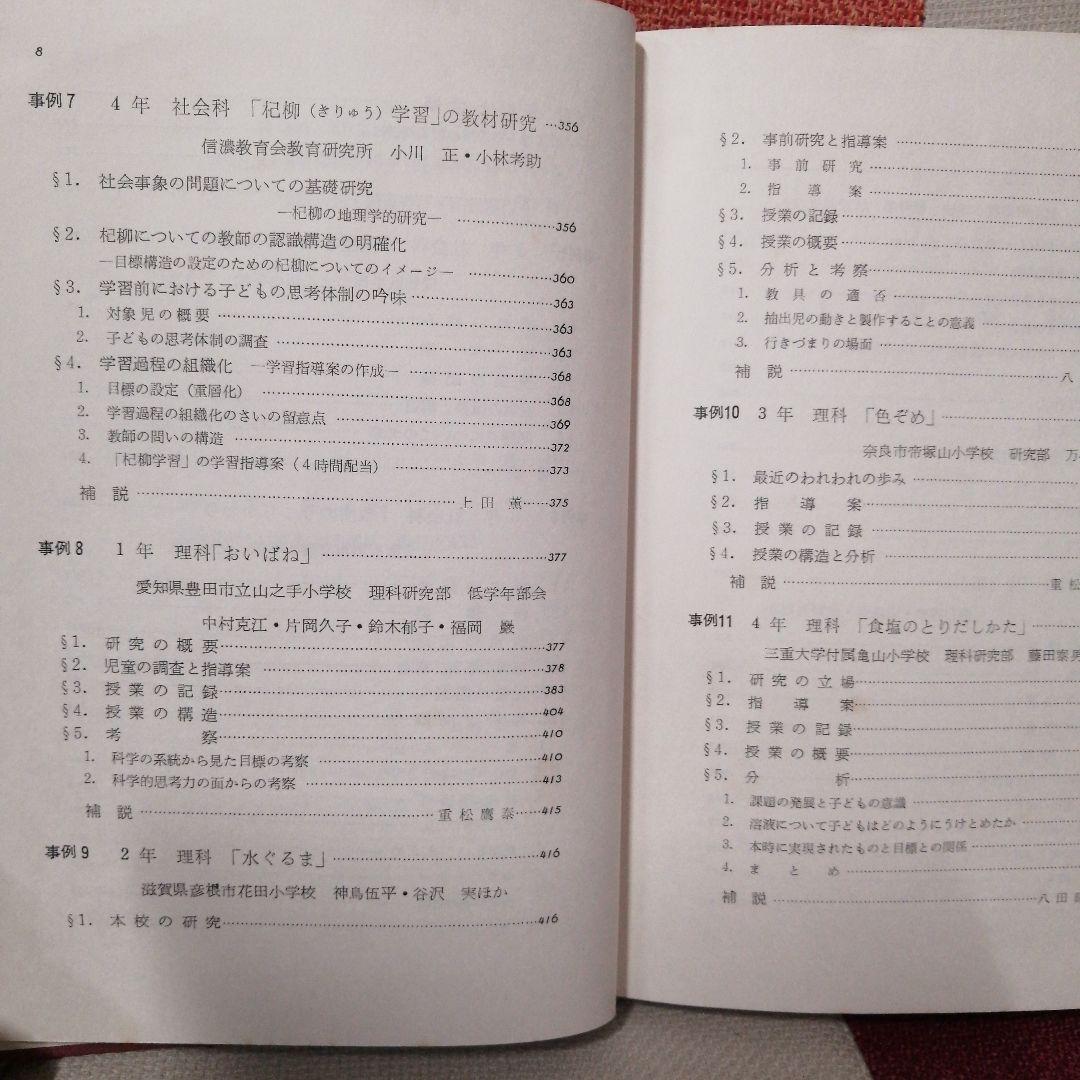 8
事例7 4年 社会科 「杞柳（きりゅう）学習」の教材研究 …356
信濃教育会教育研究所 小川 正・小林考助
§1. 社会事象の問題についての基礎研究
―杞柳の地理学的研究― ……356
§2. 杞柳についての教師の認識構造の明確化
―目標構造の設定のための杞柳についてのイメージ― ……360
§3. 学習前における子どもの思考体制の吟味……363
1. 対象児の概要……363
2. 子どもの思考体制の調査……363
§4. 学習過程の組織化 ―学習指導案の作成―……368
1. 目標の設定（重層化）……368
2. 学習過程の組織化のさいの留意点……369
3. 教師の問いの構造……372
4. 「杞柳学習」の学習指導案（4時間配当）……373
補説……上田 薫……375
事例8 1年 理科「おいばね」……377
愛知県豊田市立山之手小学校 理科研究部 低学年部会
中村克江・片岡久子・鈴木郁子・福岡 巌
§1. 研究の概要……377
§2. 児童の調査と指導案……378
§3. 授業の記録……383
§4. 授業の構造……404
§5. 考察……410
1. 科学の系統から見た目標の考察……410
2. 科学的思考力の面からの考察……413
補説……重松鷹泰……415
事例9 2年 理科 「水ぐるま」……416
滋賀県彦根市花田小学校 神鳥伍平・谷沢 実ほか
§1. 本校の研究……416
§2. 事前研究と指導案……
1. 事前研究……
2. 指導案……
§3. 授業の記録……
§4. 授業の概要……
§5. 分析と考察……
1. 教具の適否……
2. 抽出児の動きと製作することの意義……
3. 行きづまりの場面……
補説……八
事例10 3年 理科 「色ぞめ」……
奈良市帝塚山小学校 研究部 万
§1. 最近のわれわれの歩み……
§2. 指導案……
§3. 授業の記録……
§4. 授業の構造と分析……
補説……重松
事例11 4年 理科 「食塩のとりだしかた」……
三重大学付属亀山小学校 理科研究部 藤田泰男
§1. 研究の立場……
§2. 指導案……
§3. 授業の記録……
§4. 授業の概要……
§5. 分析……
1. 課題の発展と子どもの意識……
2. 溶液について子どもはどのようにうけとめたか……
3. 本時に実現されたものと目標との関係……
4. まとめ……
補説……八田